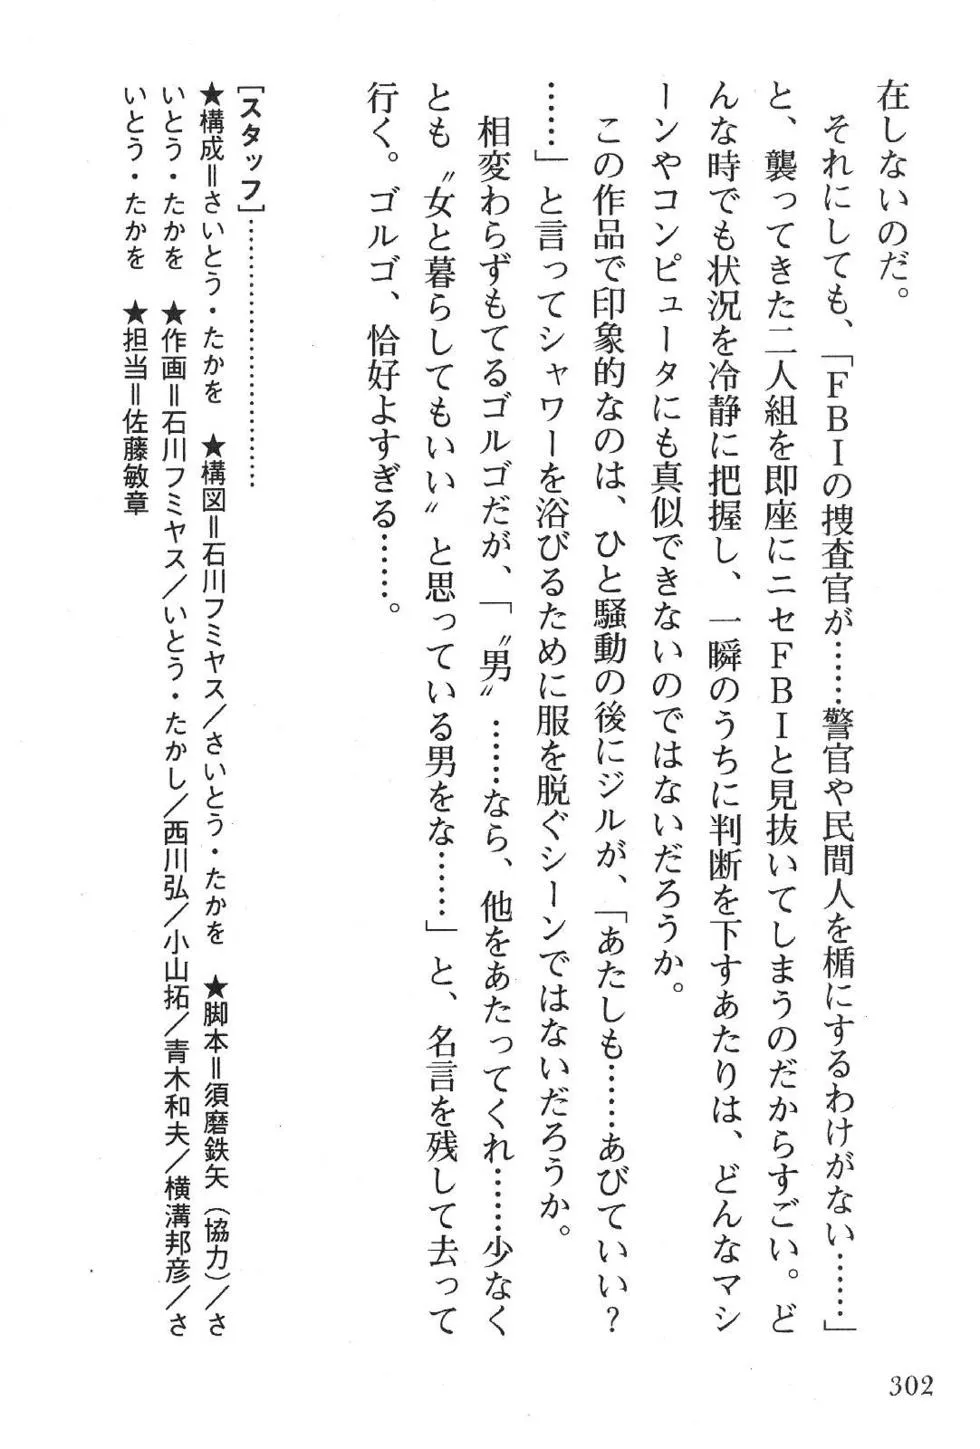 在しないのだ。
　それにしても、「ＦＢＩの捜査官が……警官や民間人を楯にするわけがない……」
と、襲ってきた二人組を即座にニセＦＢＩと見抜いてしまうのだからすごい。ど
んな時でも状況を冷静に把握し、一瞬のうちに判断を下すあたりは、どんなマシ
ーンやコンピュータにも真似できないのではないだろうか。
　この作品で印象的なのは、ひと騒動の後にジルが、「あたしも……あびていい？
……」と言ってシャワーを浴びるために服を脱ぐシーンではないだろうか。
　相変わらずもてるゴルゴだが、「〝男〟……なら、他をあたってくれ……少なく
とも〝女と暮らしてもいい〟と思っている男をな……」と、名言を残して去って
行く。ゴルゴ、恰好よすぎる……。
［スタッフ］……………………………
★構成＝さいとう・たかを　★構図＝石川フミヤス／さいとう・たかを　★脚本＝須磨鉄矢（協力）／さ
いとう・たかを　★作画＝石川フミヤス／いとう・たかし／西川弘／小山拓／青木和夫／横溝邦彦／さ
いとう・たかを　★担当＝佐藤敏章
302